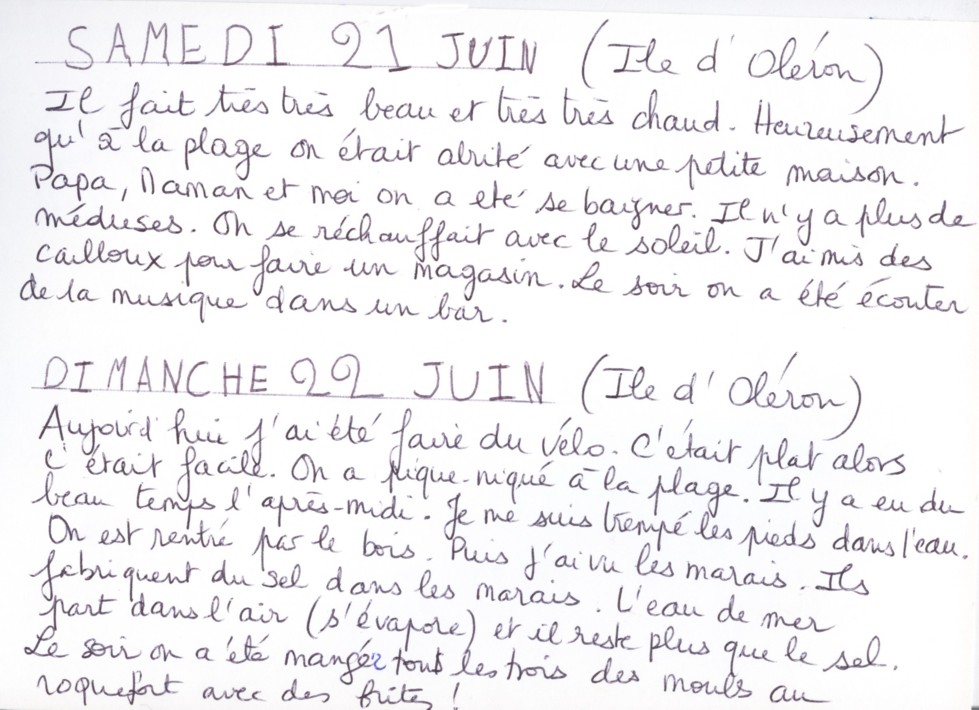 SAMEDI 21 JUIN (Ile d'Oléron)
Il fait très très beau et très très chaud. Heureusement
qu'à la plage on était abrité avec une petite maison.
Papa, Maman et moi on a eté se baigner. Il n'y a plus de
méduses. On se réchauffait avec le soleil. J'ai mis des
cailloux pour faire un magasin. Le soir on a été écouter
de la musique dans un bar.
DIMANCHE 22 JUIN (Ile d'Oléron)
Aujourd'hui j'ai été faire du vélo. C'était plat alors
c'était facile. On a pique-niqué à la plage. Il y a eu du
beau temps l'après-midi. Je me suis trempé les pieds dans l'eau.
On est rentré par le bois. Puis j'ai vu les marais. Ils
fabriquent du sel dans les marais. L'eau de mer
part dans l'air (s'évapore) et il reste plus que le sel.
Le soir on a été manger tout les trois des mouls au
roquefort avec des frites !